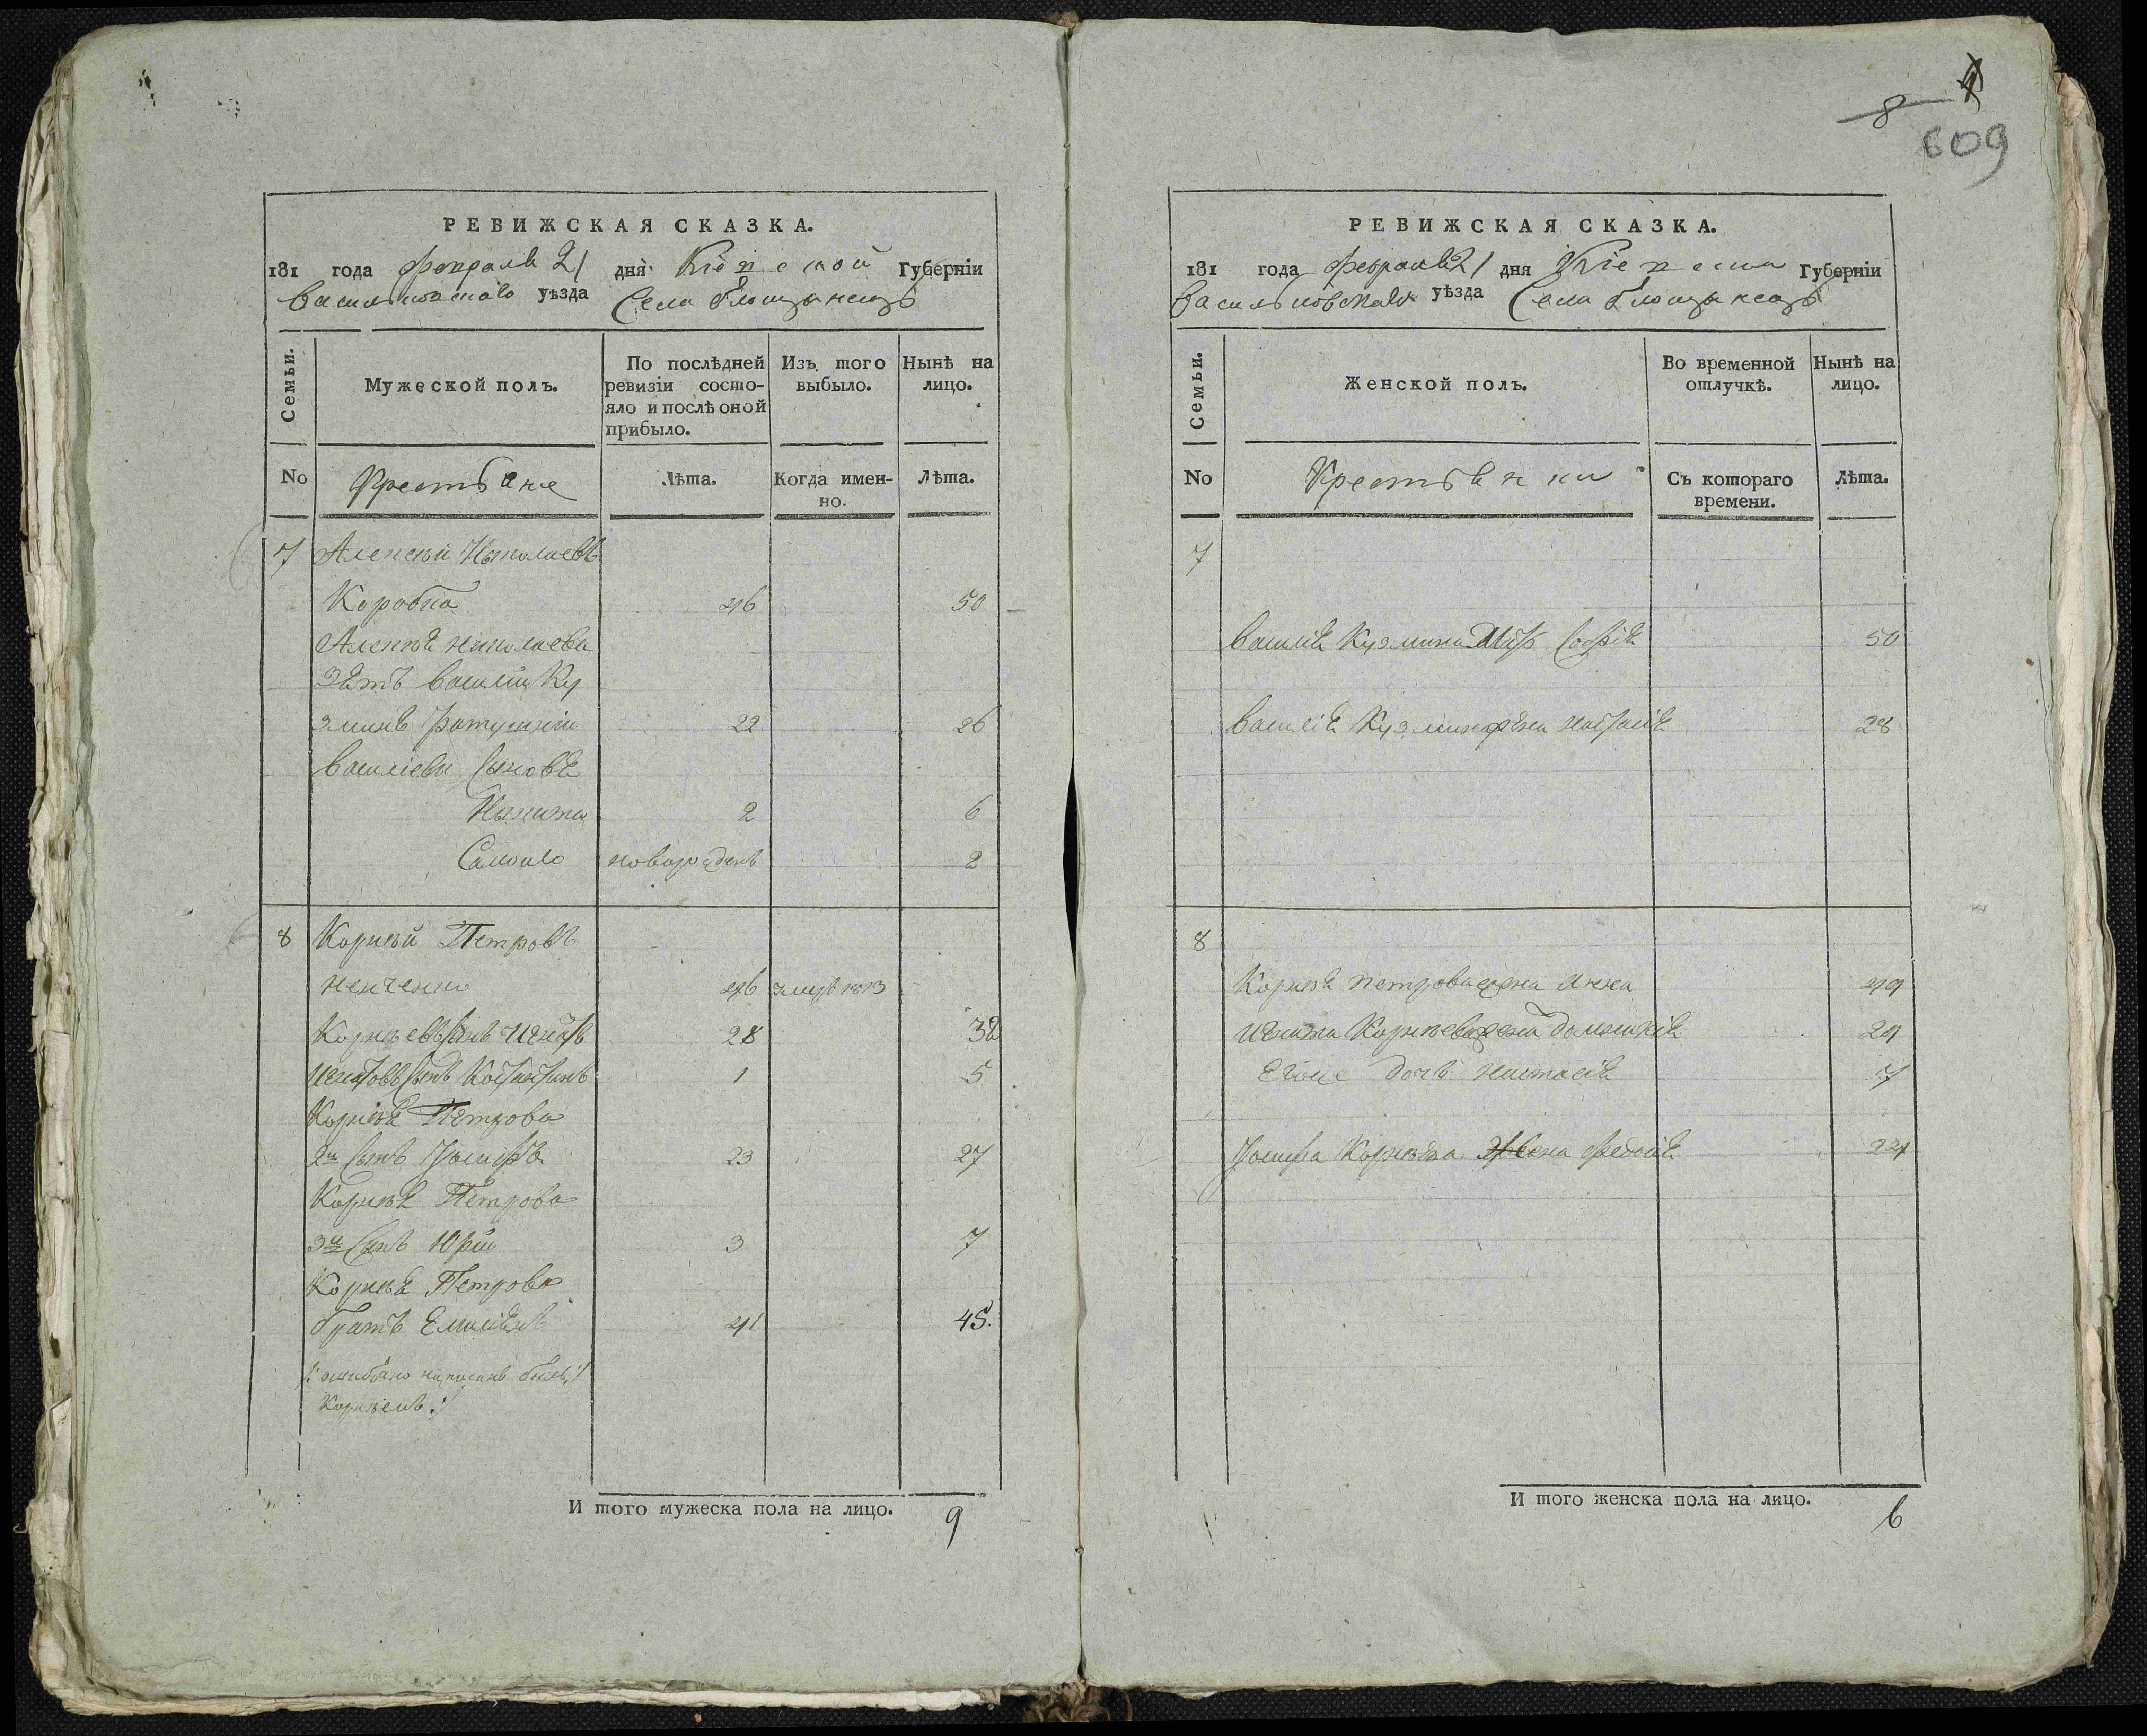 8
609
РЕВИЖСКАЯ СКАЗКА.
181 года февраля 21 дня Кіевской Губерніи
Васильковского уѣзда Села
Семьи.
Мужеской полъ.
По послѣдней ревизіи состо-
яло и послѣ оной
прибыло.
Изъ того
выбыло.
Нынѣ на
лицо.
No
Крестьяне
Лѣта.
Когда имен-
но.
Лѣта.
7 Алексѣй Николаевъ
Коробка 46 50
Алексѣя Николаева
Зять василій Ку
зминъ 22 26
василіева Сыновья
Никита 2 6
Самойло новорожденъ 2
8 Корнѣй Петровъ
46 умеръ 1813
Корнѣевъ Сынъ Игнатъ 28 32
Игнатовъ Сынъ Костантинъ 1 5
Корнѣя Петрова
2й Сынъ Іосифъ 23 27
Корнѣя Петрова
3й Сынъ Юрій 3 7
Корнѣя Петрова
братъ 41 45.
ошибочно написанъ былъ
Корнѣемъ
И того мужеска пола на лицо. 9
РЕВИЖСКАЯ СКАЗКА.
181 года февраля 21 дня Кіевской Губерніи
Васильковскаго уѣзда Села
Семьи.
Женской полъ.
Во временной
отлучкѣ.
Нынѣ на
лицо.
No
Крестьянки
Съ котораго
времени.
Лѣта.
7
василія Кузмина Мать Софія 50
василія Кузмина жена настасія 28
8
Корнѣя петрова жена Анна 49
Игната Корнѣева жена 29
Егоже дочь настасія 7
Іосифа Корнѣева Жена Федосія 24
И того женска пола на лицо. 6